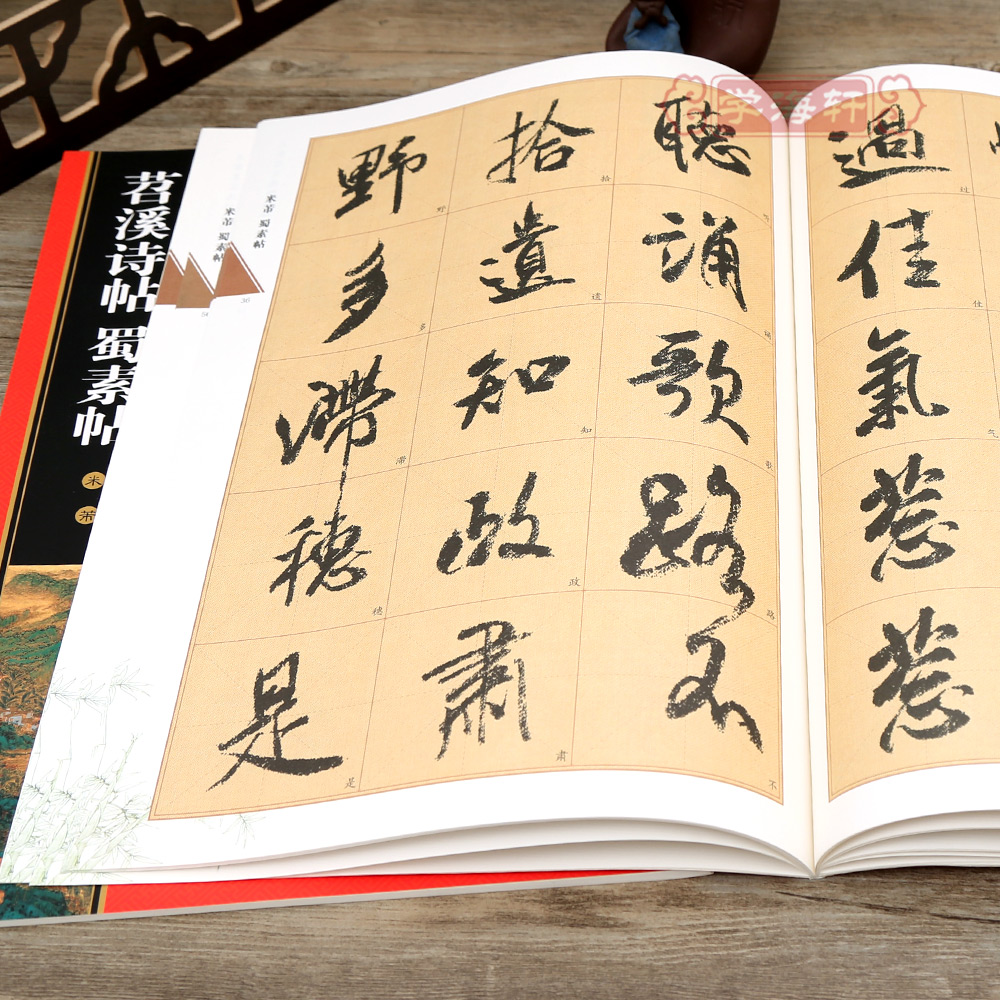 学海轩
過佳氣葱葱
过
佳
气
聽誦歌路不
听
诵
歌
路
不
拾遺知政肅
拾
遗
知
政
肃
野多滯穗是
野
多
滞
穗
是
米芾 蜀素帖
36
米芾 蜀素帖
苕溪诗帖
蜀素帖
米芾